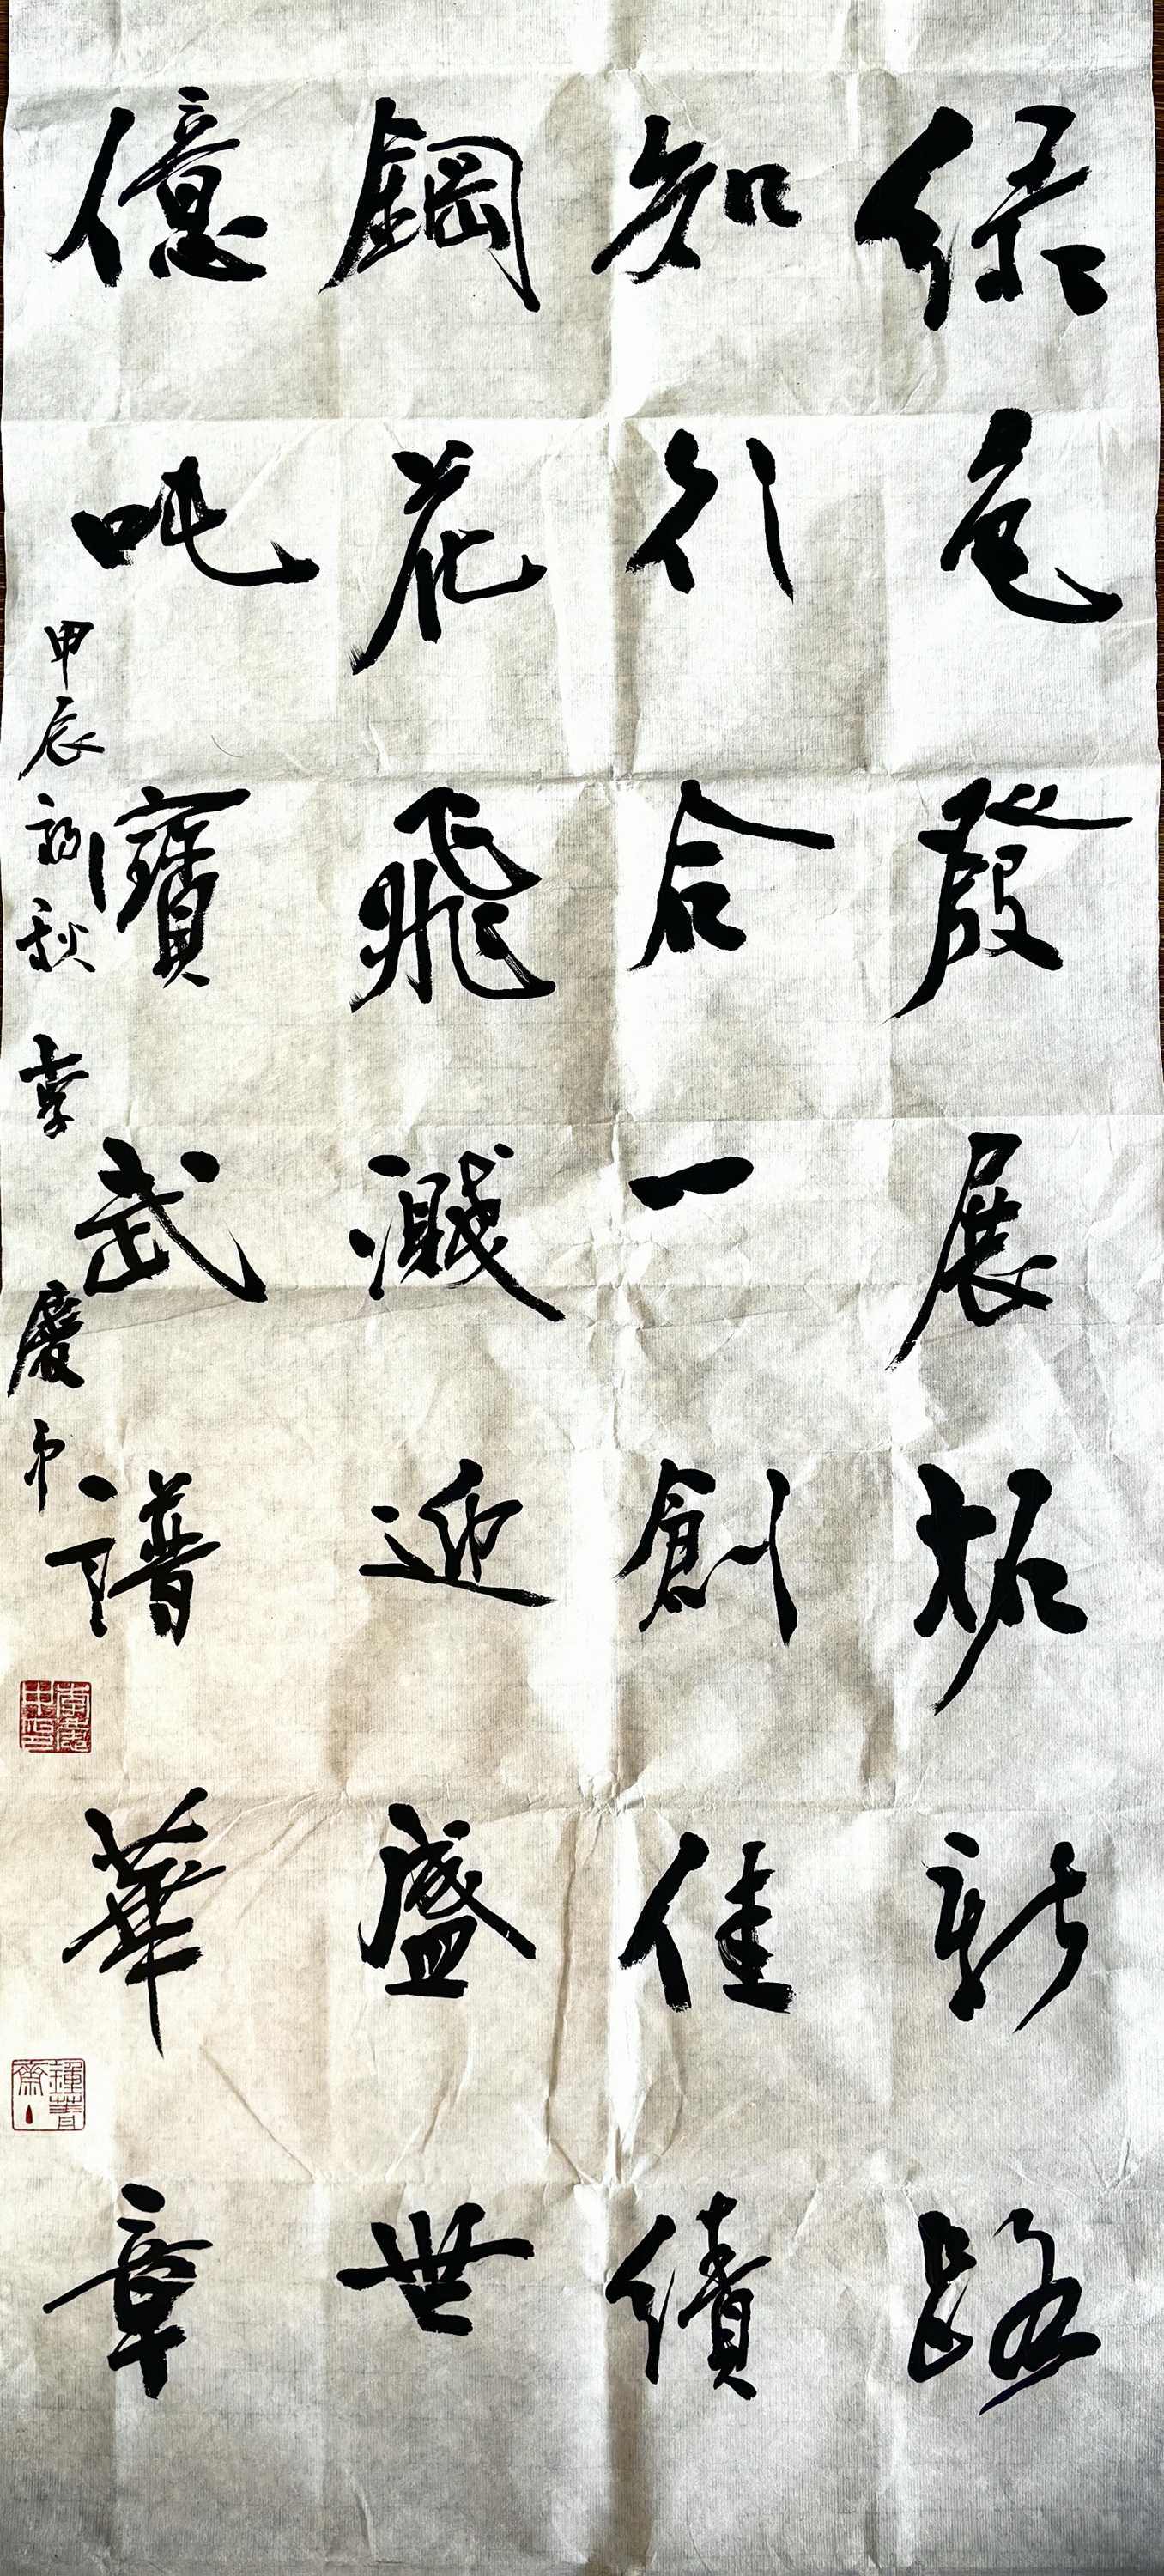 綠色發展拓新路
知行合一創佳績
鋼花飛濺迎盛世
億吨寶武譜華章
甲辰初秋 李慶中